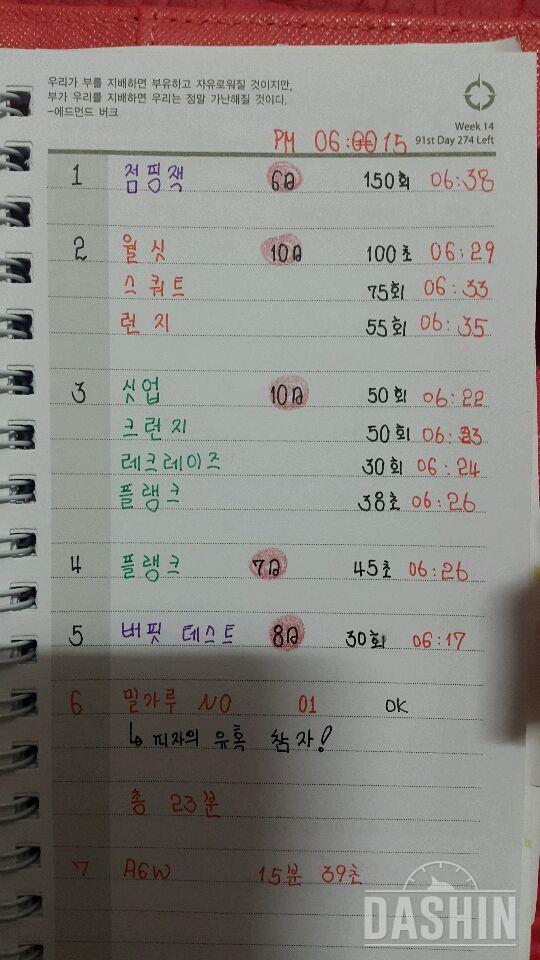 우리가 부를 지배하면 부유하고 자유로워질 것이지만,
부가 우리를 지배하면 우리는 정말 가난해질 것이다.
-에드먼드 버크
Week 14
91st Day 274 Left
PM 06:00 15
1 점핑잭 6일 150회 06:38
2 월싯 10일 100초 06:29
스쿼트 75회 06:33
런지 55회 06:35
3 싯업 10일 50회 06:22
크런치 50회 06:23
레그레이즈 30회 06:24
플랭크 38초 06:26
4 플랭크 7일 45초 06:26
5 버핏 테스트 8일 30회 06:17
6 밀가루 NO 01 OK
↳ 피자의 유혹 참자!
총 23분
7 A6W 15분 39초
DASHIN